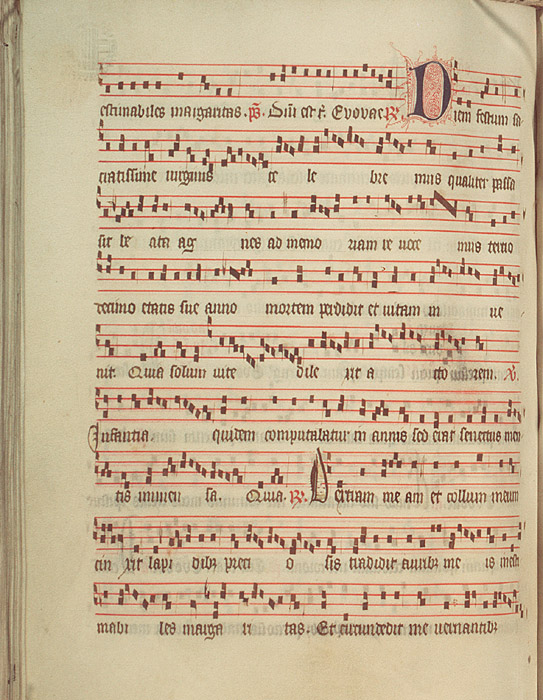 estimabiles margaritas. ps. Diu est r. Evovae R. Diem festum sa
cratissime virginis ce le bre mus qualiter passa
sit be ata ag nes ad memo riam re voce mus tercio
decimo etatis sue anno mortem perdidit et vitam in ve
nit. Quia solum vite dile xit a cto rem. V.
Infantia quidem computabatur in annis sed erat senectus men
tis inmen sa. Quia. R. Dexteram me am et collum meum
cin xit lapi dibus preci o sis tradidit auribus me is inesti
mabi les marga ri tas. Et circumdedit me vernantibus